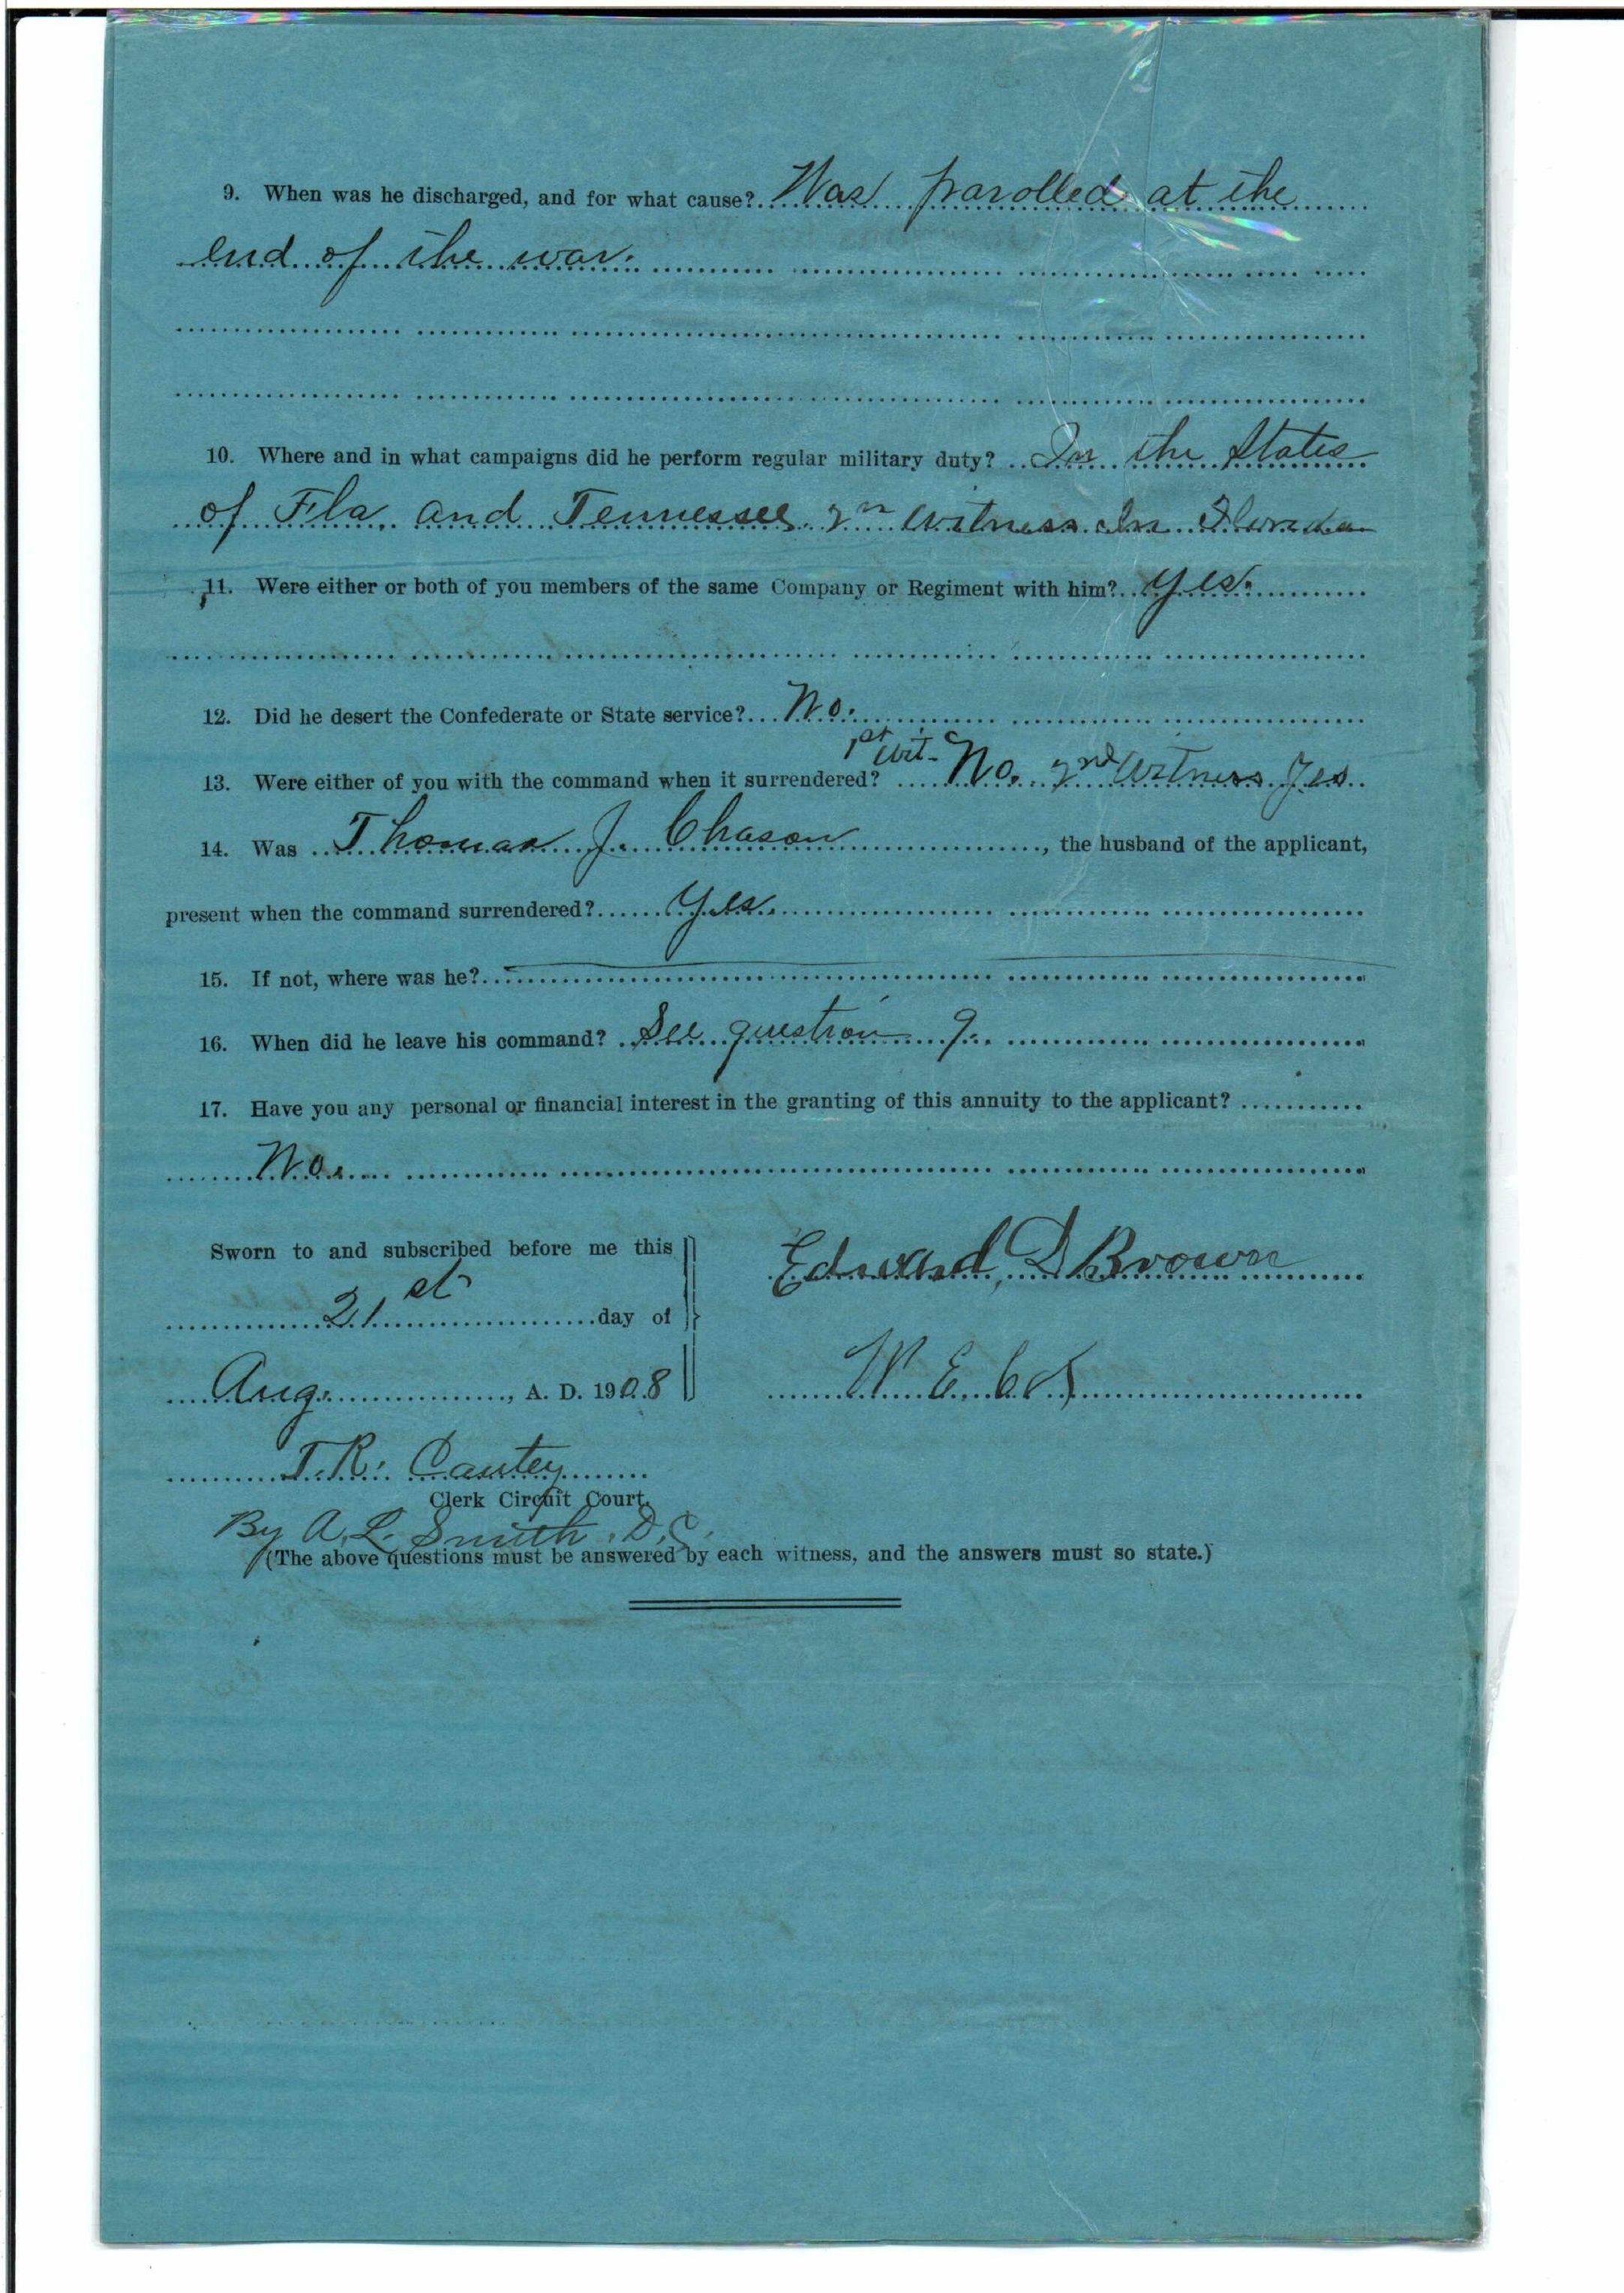 9. When was he discharged, and for what cause? Was parolled at the
end of the war.
10. Where and in what campaigns did he perform regular military duty? In the States
of Fla. and Tennessee. 2n witness In Florida
11. Were either or both of you members of the same Company or Regiment with him? Yes.
12. Did he desert the Confederate or State service? No.
13. Were either of you with the command when it surrendered? 1st Wit- No. 2nd Witness Yes.
14. Was Thomas J. Chason, the husband of the applicant,
present when the command surrendered? Yes.
15. If not, where was he?
16. When did he leave his command? See question 9.
17. Have you any personal or financial interest in the granting of this annuity to the applicant?
No.
Sworn to and subscribed before me this
21st day of
Aug., A. D. 1908
Edward, D Brown
W. E.
T. R. Cantey
Clerk Circuit Court.
By A. L. Smith. D. C.
(The above questions must be answered by each witness, and the answers must so state.)